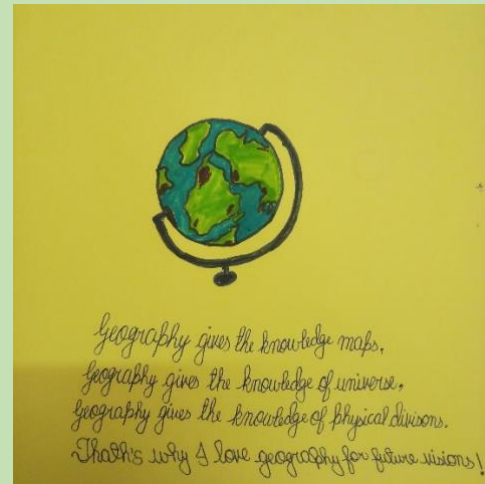 Geography gives the knowledge maps.
Geography gives the knowledge of universe.
Geography gives the knowledge of physical divisons.
Thath's why I love geography for future visions!